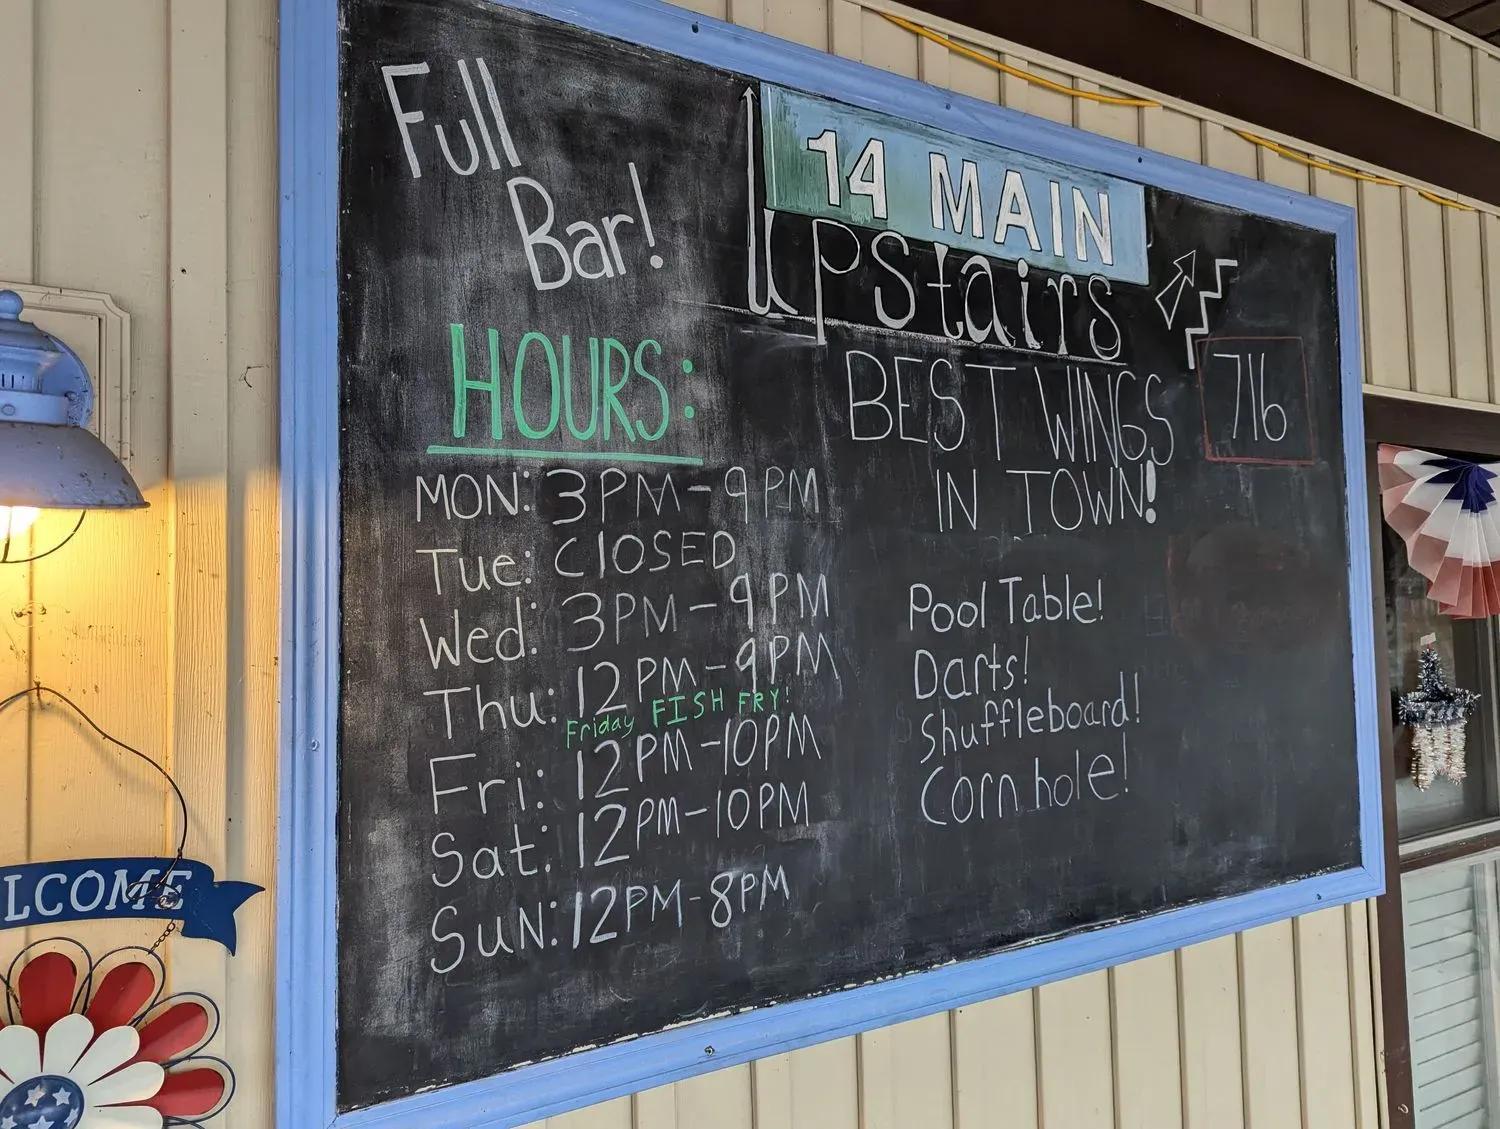 Full
Bar!
14 MAIN
Upstairs
HOURS:
MON: 3PM-9PM
Tue: ClOSED
Wed: 3PM-9PM
Thu: 12PM-9PM
Friday FISH FRY!
Fri: 12PM-10PM
Sat: 12PM-10PM
SuN: 12PM-8PM
BEST WINGS
IN TOWN!
716
Pool Table!
Darts!
Shuffleboard!
Corn hole!
LCOME